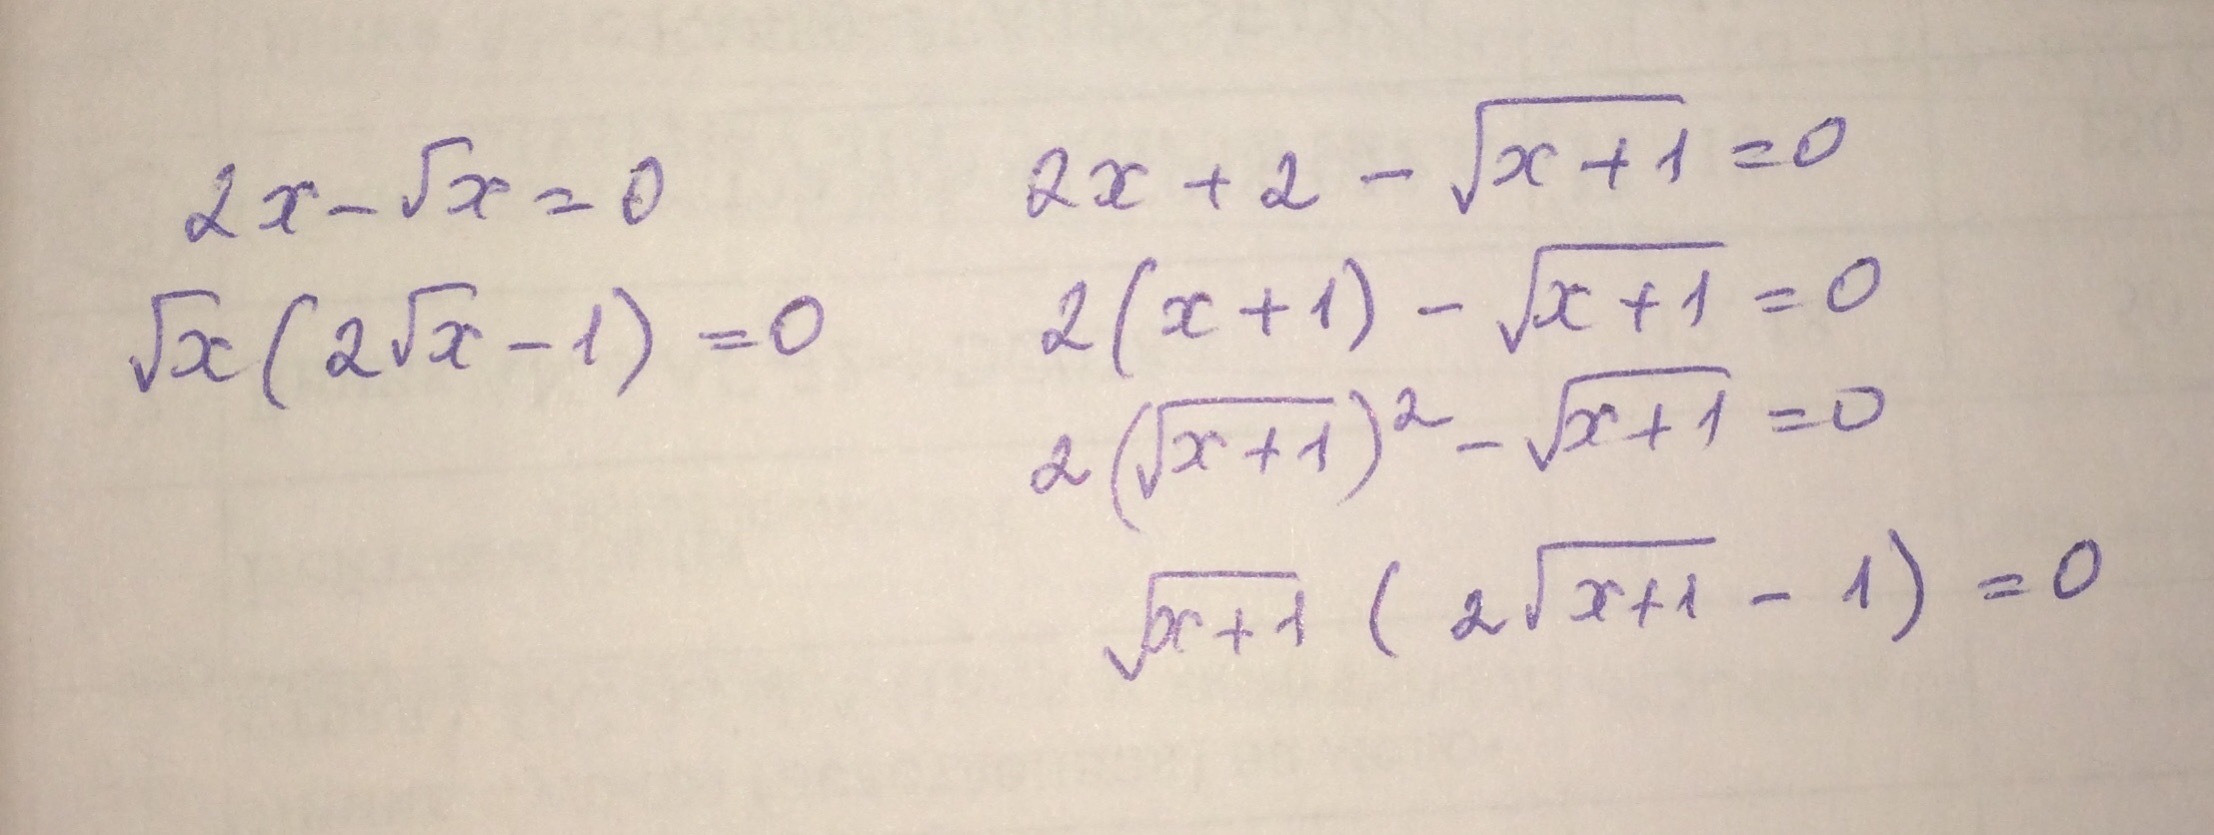 2x-√x=0
√x(2√x-1)=0
2x+2-√(x+1)=0
2(x+1)-√(x+1)=0
2(√(x+1))²-√(x+1)=0
√(x+1)(2√(x+1)-1)=0